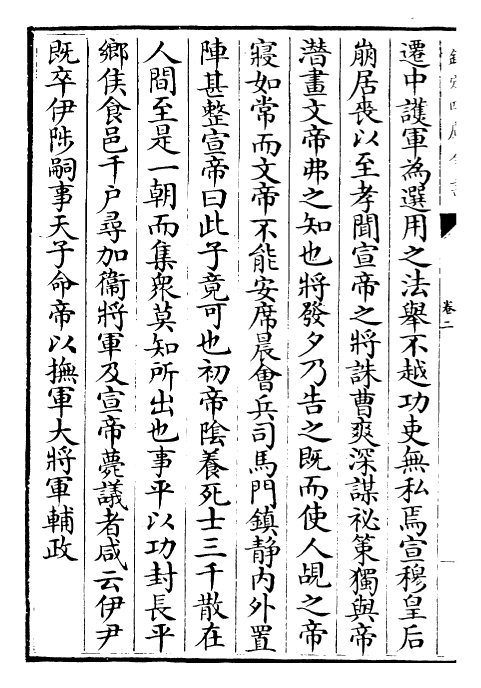 欽定四庫全書
卷二
遷中護軍為選用之法舉不越功吏無私焉宣穆皇后
崩居喪以至孝聞宣帝之將誅曹爽深謀祕策獨與帝
潛畫文帝弗之知也將發夕乃告之既而使人覘之帝
寢如常而文帝不能安席晨會兵司馬門鎮靜內外置
陣甚整宣帝曰此子竟可也初帝陰養死士三千散在
人間至是一朝而集衆莫知所出也事平以功封長平
鄉侯食邑千户尋加衞將軍及宣帝薨議者咸云伊尹
既卒伊陟嗣事天子命帝以撫軍大將軍輔政